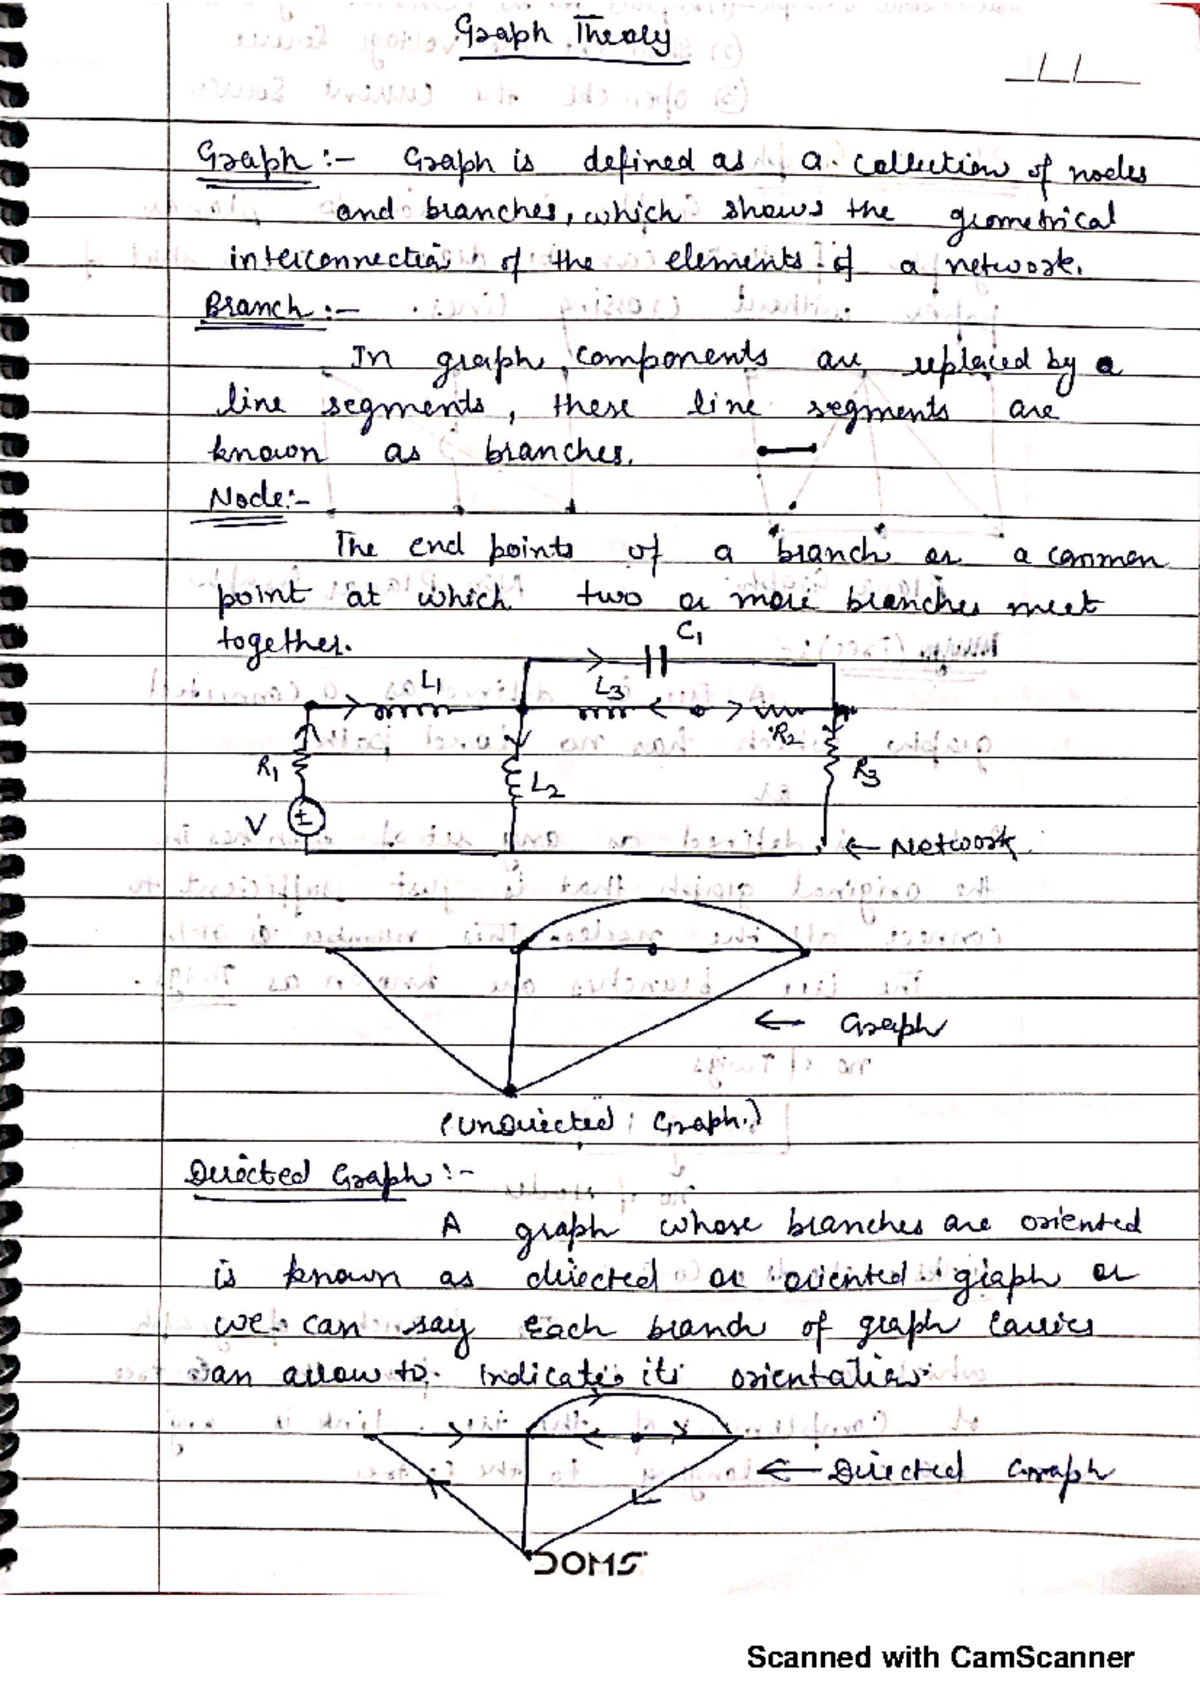 Graph Theory
Graph :- Graph is defined as a collection of nodes
and branches, which shows the geometrical
interconnection of the elements of a network.
Branch :-
In graph, components are replaced by a
line segments, these line segments are
known as branches.
Node :-
The end points of a branch or a common
point at which two or more branches meet
together.
C1
L1 L3
R1 L2 R2 R3
V
← Network
← Graph
(Undirected Graph)
Directed Graph :-
A graph whose branches are oriented
is known as directed or oriented graph or
we can say each branch of graph carries
an arrow to indicate its orientation.
← Directed Graph
DOMS
Scanned with CamScanner